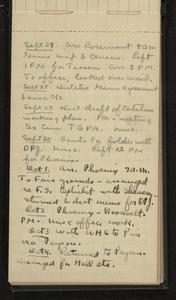 Sept 27. Arr. Rosemont 8 am
Genev map & Census. Left
1 PM for Tucson Arr 3 PM.
To office, looked over mail.
Sept 28 Dictated Game agreement
& misc. G's.
Sept 29 Next draft of Catalina
working plan. PM - meeting
Bo Com TGPA. misc.
Sept 30. Santa Fe folder with
DPJ. Misc. Left 12 PM
for Phoenix.
Oct 1. Arr. Phoenix 7 a.m.
To Fair grounds - arranged
re F.S. Exhibit with
returned to dist memo for DPJ.
Oct 2 Phoenix - Roosevelt.
PM - misc office work.
Oct 3 With WHG to Pine
via Payson.
Oct 4. Returned to Payson.
Arranged for Mail etc.